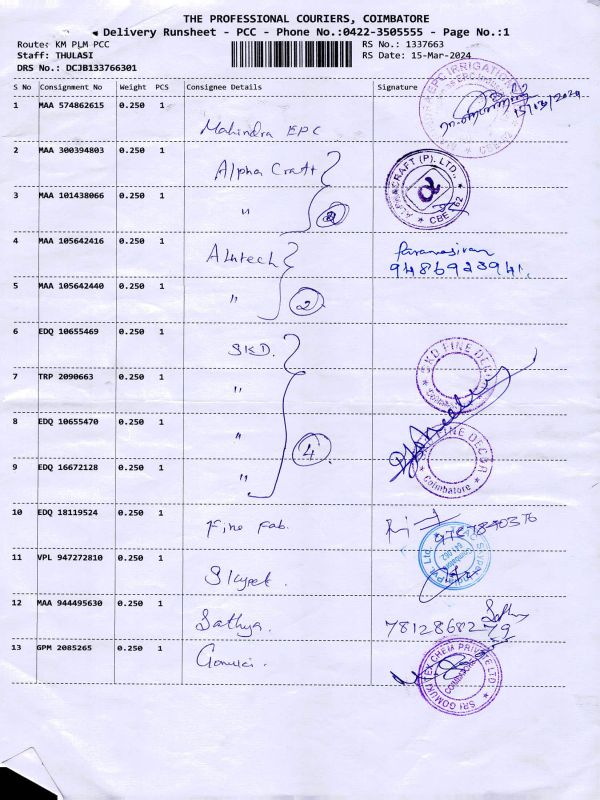 THE PROFESSIONAL COURIERS, COIMBATORE
Delivery Runsheet - PCC - Phone No.:0422-3505555 - Page No.:1
Route: KM PLM PCC
RS No.: 1337663
Staff: THULASI
RS Date: 15-Mar-2024
DRS No.: DCJB133766301
S No Consignment No Weight PCS Consignee Details Signature
1 MAA 574862615 0.250 1 Mahindra EPC
15/03/2024
2 MAA 300394803 0.250 1 Alpha Craft
ALPHACRAFT (P). LTD., CBE
α
3 MAA 101438066 0.250 1 "
4 MAA 105642416 0.250 1 Alutech
9486923941
5 MAA 105642440 0.250 1 " 2
6 EDQ 10655469 0.250 1 SKD.
SKD FINE DECOR
Coimbatore
7 TRP 2090663 0.250 1 "
8 EDQ 10655470 0.250 1 " 4
FINE DECOR
Coimbatore
9 EDQ 16672128 0.250 1 "
10 EDQ 18119524 0.250 1 Fine Fab.
11 VPL 947272810 0.250 1
Pvt. Ltd.
12 MAA 944495630 0.250 1 Sathya.
Sathy
7812868279
13 GPM 2085265 0.250 1 Gomuki.
SRI GOMUKI TEX CHEM PRIVATE LTD